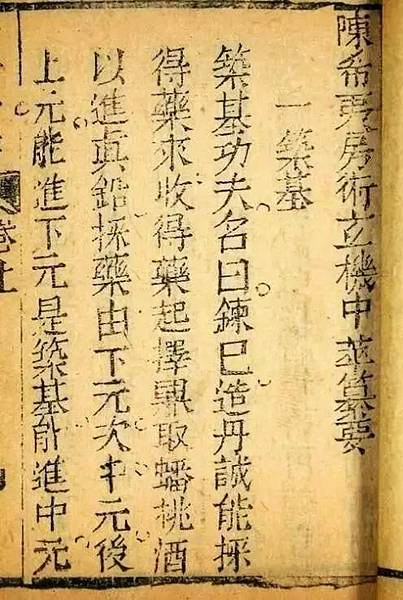 陳希夷房術玄機中萃纂要
一築基
築基功夫名曰鍊巳造丹誠能採
得藥来收得藥起擇鼎取蟠桃酒
以進眞鉛採藥由下元次中元後
上元能進下元是築基能進中元